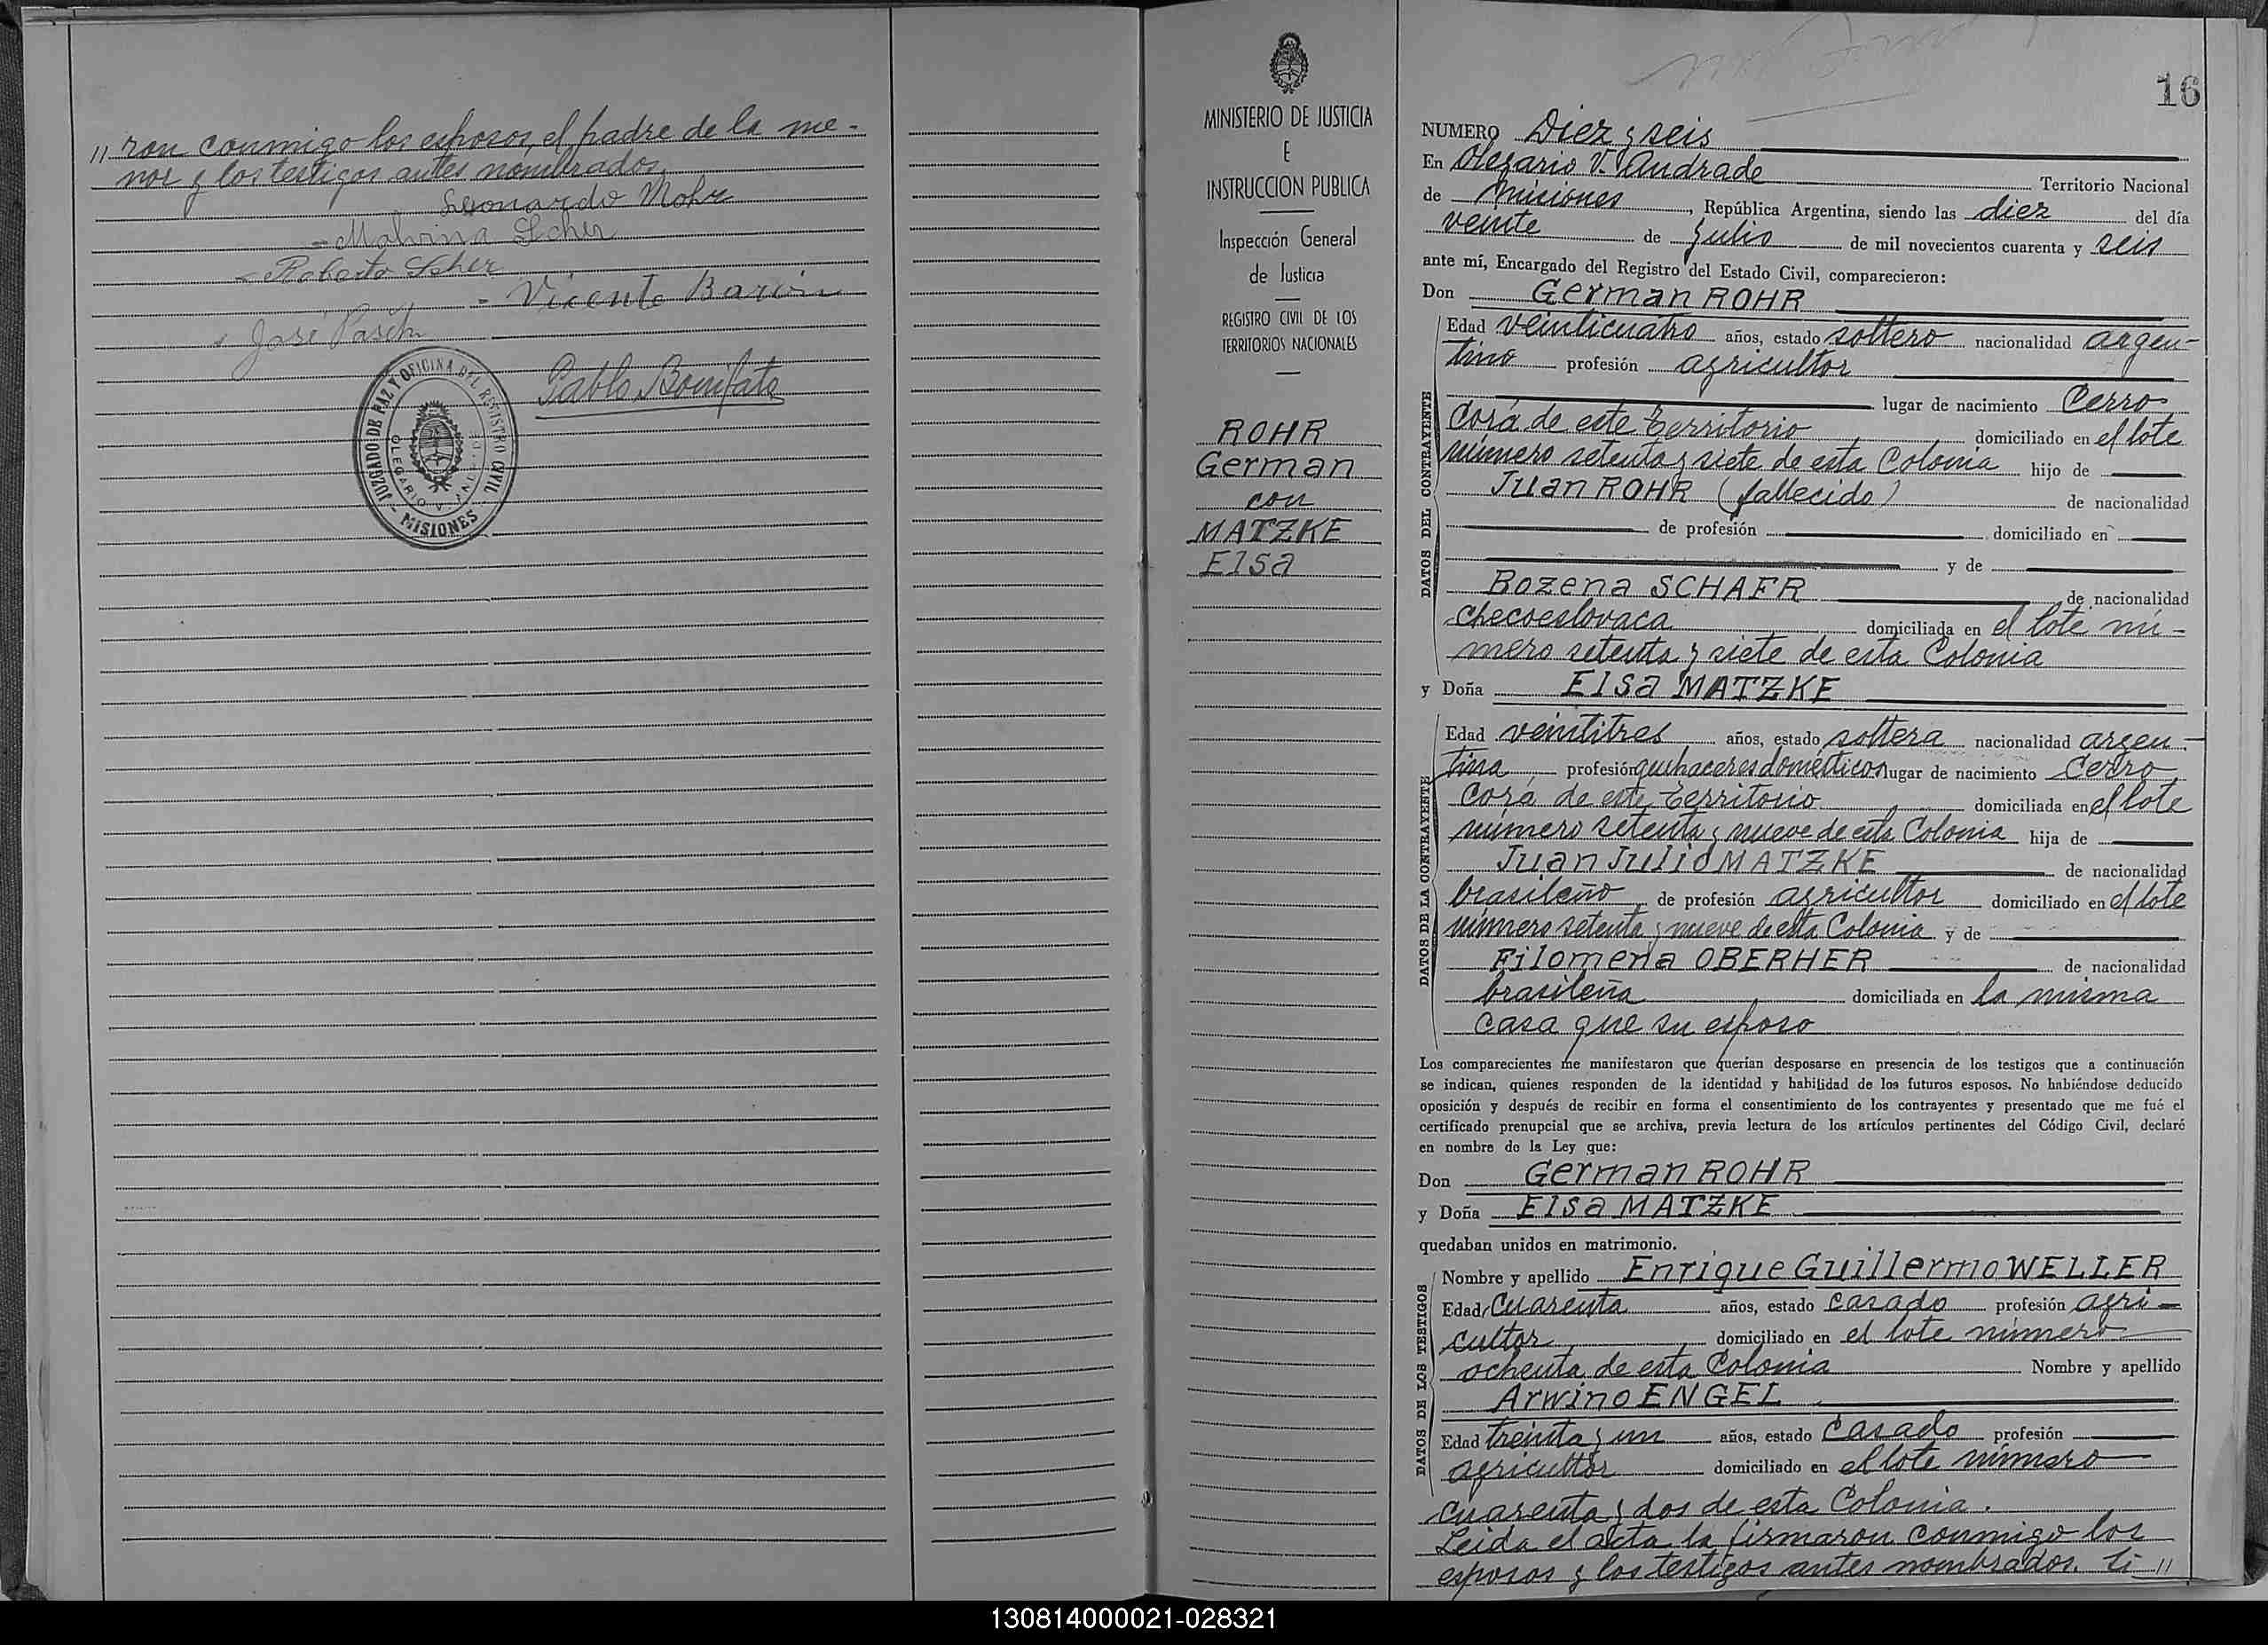 " ron conmigo los esposos, el padre de la me-
nor y los testigos antes nombrados.
Leonardo Mohr
- Malvina Scher
- Roberto Scher
- Vicente Barón
José Pasch
Pablo Bonifato
JUZGADO DE PAZ Y OFICINA DEL REGISTRO CIVIL
OLEGARIO V. ANDRADE
- MISIONES -
MINISTERIO DE JUSTICIA
E
INSTRUCCION PUBLICA
Inspección General
de Justicia
REGISTRO CIVIL DE LOS
TERRITORIOS NACIONALES
ROHR
German
con
MATZKE
Elsa
16
NUMERO Diez y seis
En Olegario V. Andrade Territorio Nacional
de Misiones, República Argentina, siendo las diez del día
veinte de Julio de mil novecientos cuarenta y seis
ante mí, Encargado del Registro del Estado Civil, comparecieron:
Don German ROHR
DATOS DEL CONTRAYENTE
Edad veinticuatro años, estado soltero nacionalidad argen-
tino profesión agricultor
lugar de nacimiento Cerro
Corá de este Territorio domiciliado en el lote
número setenta y siete de esta Colonia hijo de
Juan ROHR (fallecido) de nacionalidad
de profesión domiciliado en
y de
Bozena SCHAFR de nacionalidad
checoeslovaca domiciliada en el lote nú-
mero setenta y siete de esta Colonia
y Doña Elsa MATZKE
DATOS DE LA CONTRAYENTE
Edad veintitres años, estado soltera nacionalidad argen-
tina profesión quehaceres domésticos lugar de nacimiento Cerro
Corá de este Territorio domiciliada en el lote
número setenta y nueve de esta Colonia hija de
Juan Julio MATZKE de nacionalidad
brasileño de profesión agricultor domiciliado en el lote
número setenta y nueve de esta Colonia y de
Filomena OBERHER de nacionalidad
brasileña domiciliada en la misma
casa que su esposo
Los comparecientes me manifestaron que querían desposarse en presencia de los testigos que a continuación
se indican, quienes responden de la identidad y habilidad de los futuros esposos. No habiéndose deducido
oposición y después de recibir en forma el consentimiento de los contrayentes y presentado que me fué el
certificado prenupcial que se archiva, previa lectura de los artículos pertinentes del Código Civil, declaré
en nombre de la Ley que:
Don German ROHR
y Doña Elsa MATZKE
quedaban unidos en matrimonio.
DATOS DE LOS TESTIGOS
Nombre y apellido Enrique Guillermo WELLER
Edad cuarenta años, estado casado profesión agri-
cultor domiciliado en el lote número
ochenta de esta Colonia Nombre y apellido
Arwino ENGEL
Edad treinta y un años, estado casado profesión
agricultor domiciliado en el lote número
cuarenta y dos de esta Colonia.
Leida el acta la firmaron conmigo los
esposos y los testigos antes nombrados. "
130814000021-028321